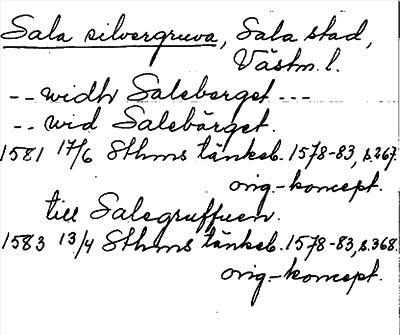 Sala silvergruva, Sala stad,
Västm. l.
-- widh Saleberget ---
-- wid Salebärget.
1581 17/6 Sthms tänkeb. 1578-83, s. 267.
orig.-koncept.
till Salegruffuen.
1583 13/4 Sthms tänkeb. 1578-83, s. 368.
orig.-koncept.